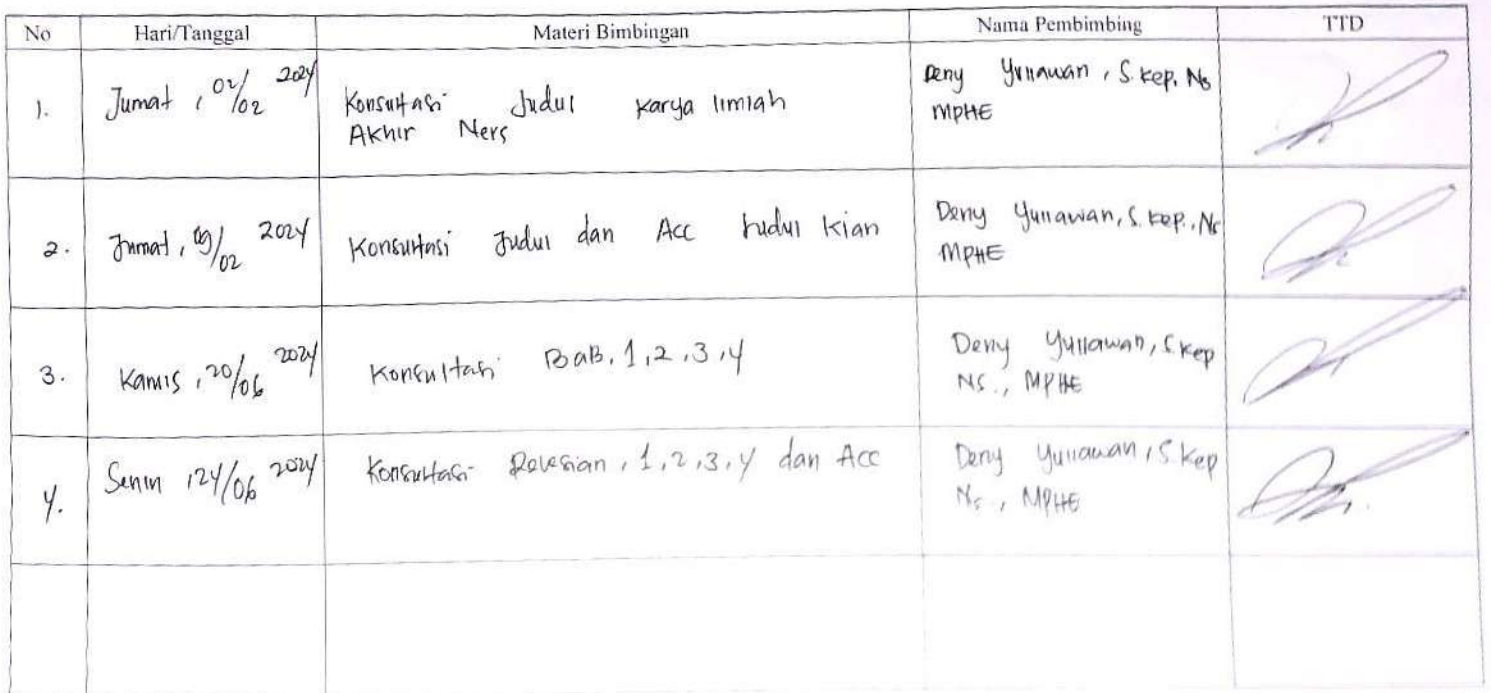 No Hari/Tanggal Materi Bimbingan Nama Pembimbing TTD
1. Jumat, 02/02 2024 Konsultasi Judul Karya Ilmiah Deny Yuliawan, S.Kep, Ns
Akhir Ners MPHE
2. Jumat, 09/02 2024 Konsultasi Judul dan Acc Judul Kian Deny Yuliawan, S.Kep., Ns
MPHE
3. Kamis, 20/06 2024 Konsultasi BaB, 1,2,3,4 Deny Yuliawan, S.Kep
NS., MPHE
4. Senin, 24/06 2024 Konsultasi Revesian, 1,2,3,4 dan Acc Deny Yuliawan, S.Kep
Ns., MPHE